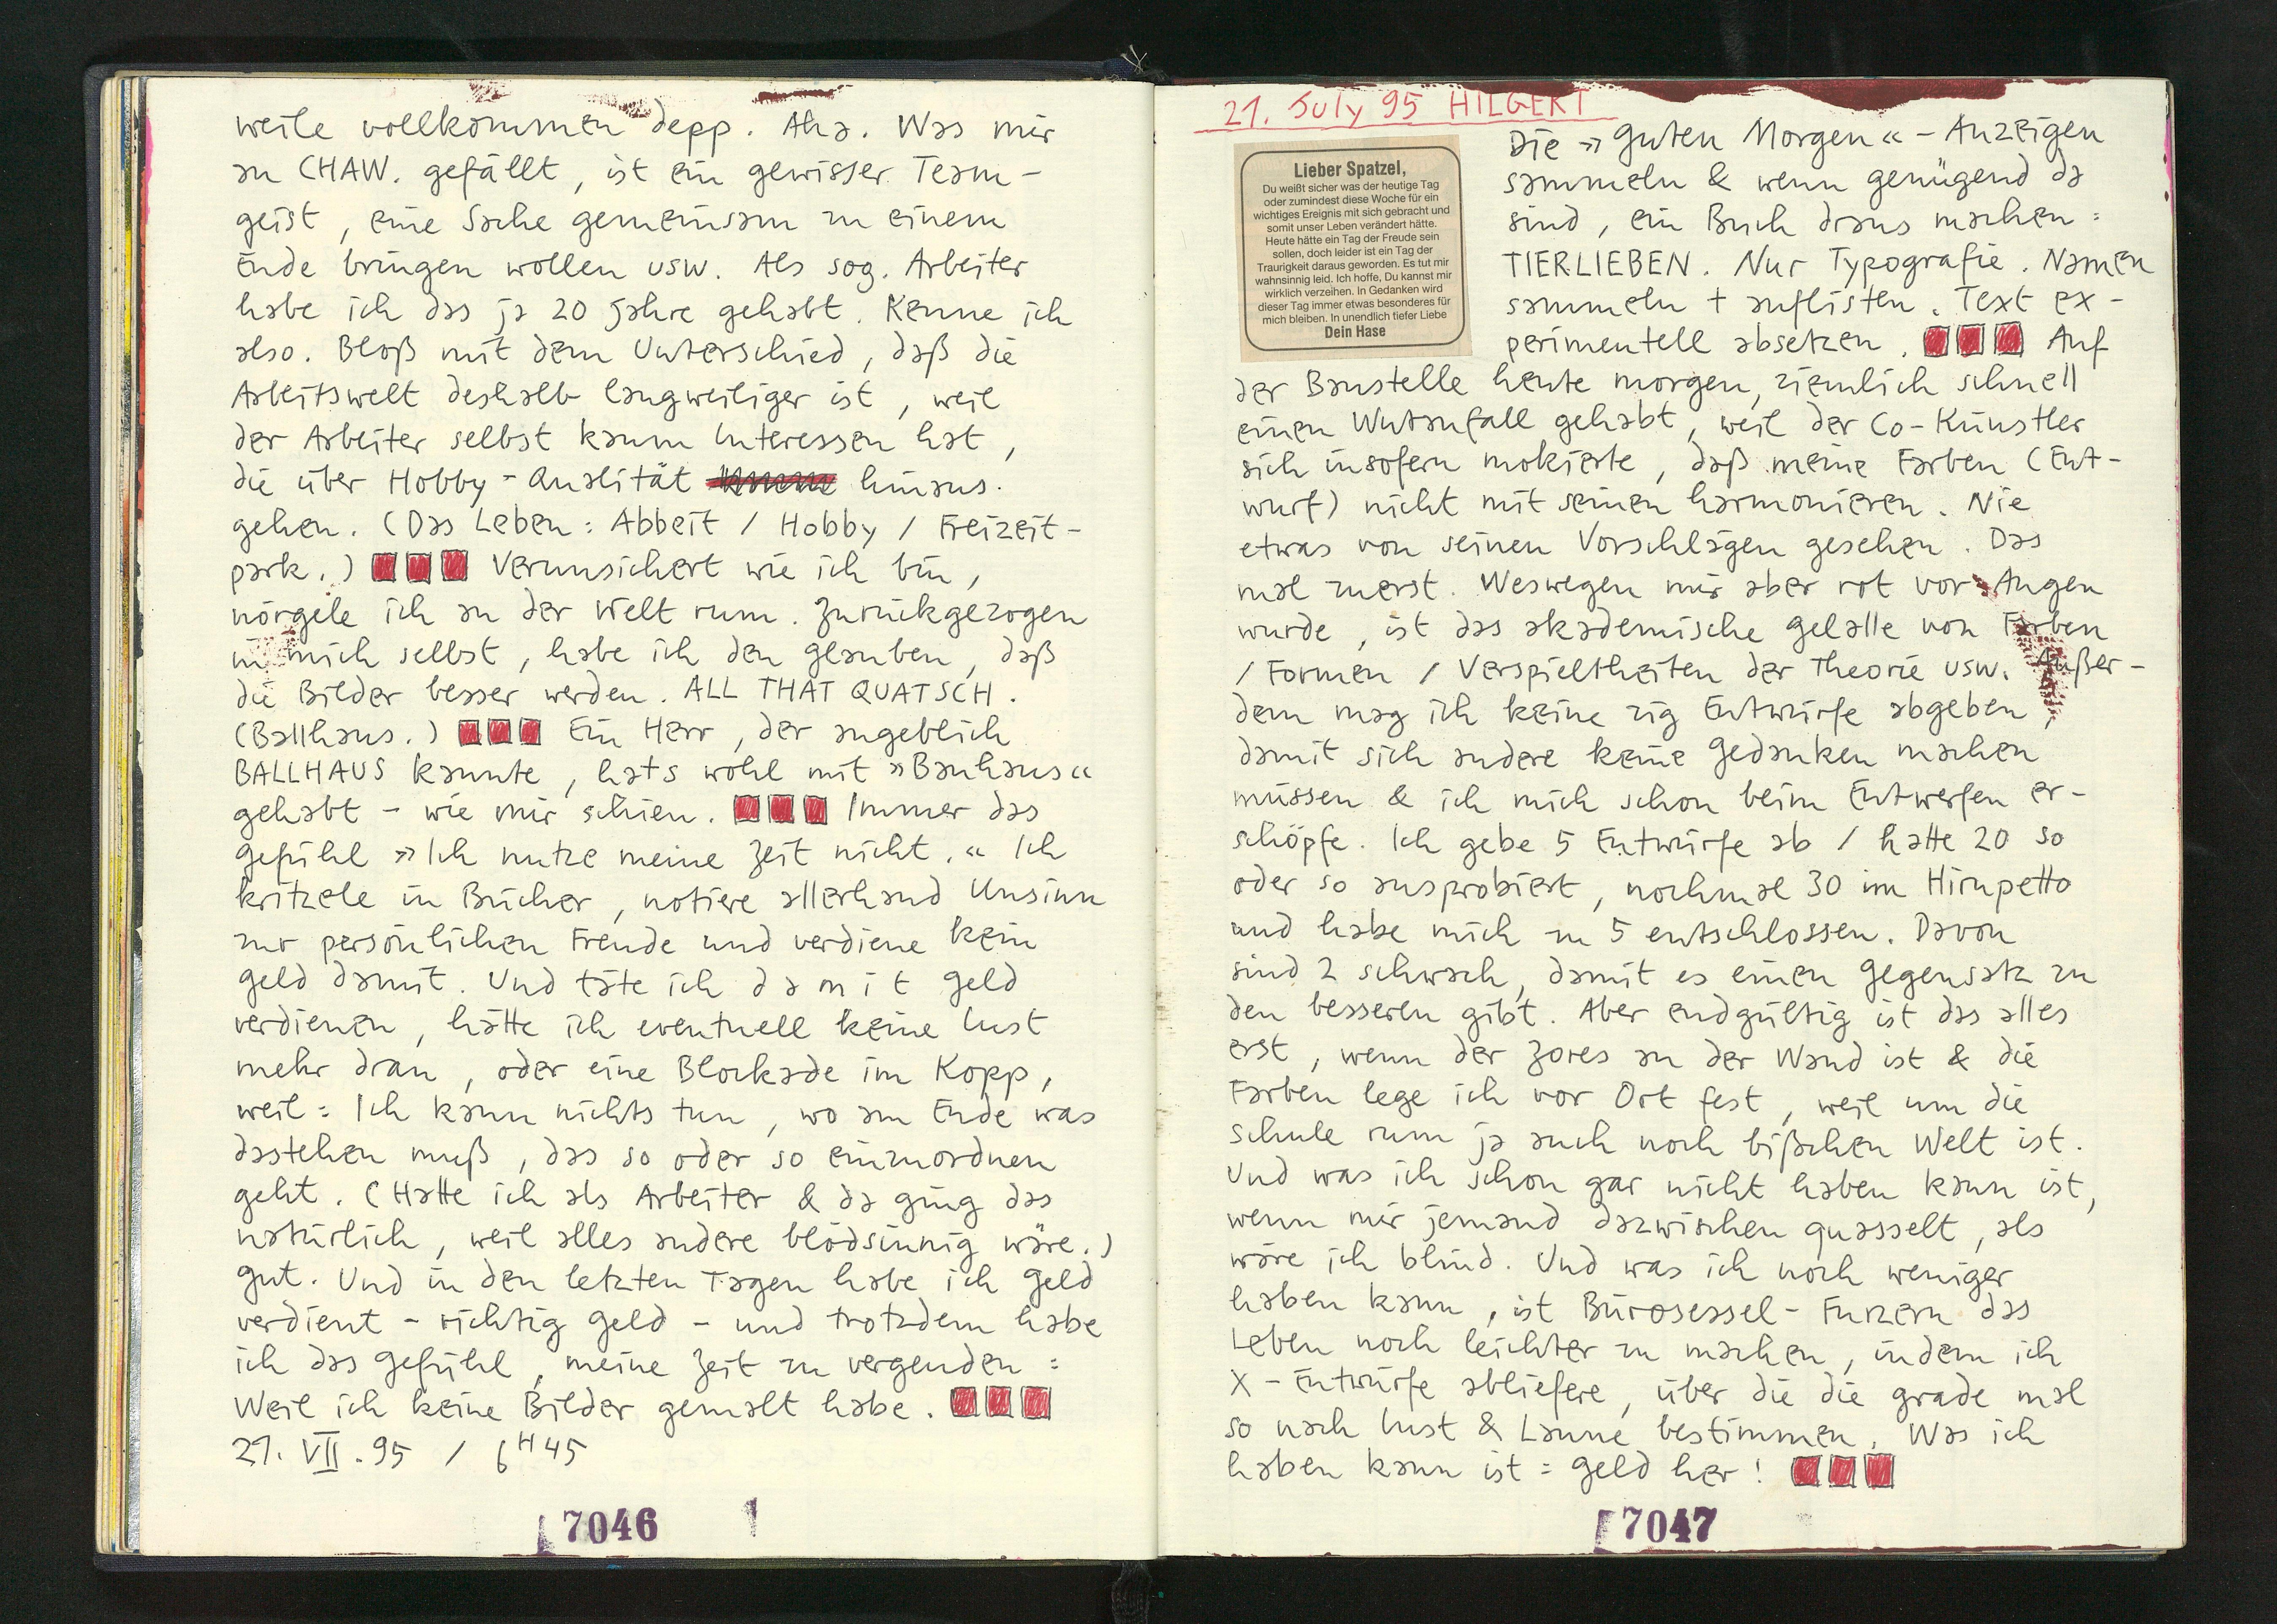 weile vollkommen depp. Aha. Was mir
an CHAW. gefällt, ist ein gewisser Team-
geist, eine Sache gemeinsam zu einem
Ende bringen wollen usw. Als sog. Arbeiter
habe ich das ja 20 Jahre gehabt. Kenne ich
also. Bloß mit dem Unterschied, daß die
Arbeitswelt deshalb langweiliger ist, weil
der Arbeiter selbst kaum Interessen hat,
die über Hobby-Qualität hinaus.
gehen. (Das Leben: Abbeit / Hobby / Freizeit-
park.) Verunsichert wie ich bin,
nörgele ich an der Welt rum. Zurückgezogen
in mich selbst, habe ich den Glauben, daß
die Bilder besser werden. ALL THAT QUATSCH.
(Ballhaus.) Ein Herr, der angeblich
BALLHAUS kannte, hats wohl mit »Bauhaus«
gehabt – wie mir schien. Immer das
Gefühl »Ich nutze meine Zeit nicht.« Ich
kritzele in Bücher, notiere allerhand Unsinn
zur persönlichen Freude und verdiene kein
Geld damit. Und täte ich d a m i t Geld
verdienen, hätte ich eventuell keine Lust
mehr dran, oder eine Blockade im Kopp,
weil: Ich kann nichts tun, wo am Ende was
dastehen muß, das so oder so einzuordnen
geht. (Hatte ich als Arbeiter & da ging das
natürlich, weil alles andere blödsinnig wäre.)
Gut. Und in den letzten Tagen habe ich Geld
verdient – richtig Geld – und trotzdem habe
ich das Gefühl, meine Zeit zu vergeuden:
Weil ich keine Bilder gemalt habe.
21. VII. 95 / 6H45
7046
21. July 95 HILGERT
Lieber Spatzel,
Du weißt sicher was der heutige Tag
oder zumindest diese Woche für ein
wichtiges Ereignis mit sich gebracht und
somit unser Leben verändert hätte.
Heute hätte ein Tag der Freude sein
sollen, doch leider ist ein Tag der
Traurigkeit daraus geworden. Es tut mir
wahnsinnig leid. Ich hoffe, Du kannst mir
wirklich verzeihen. In Gedanken wird
dieser Tag immer etwas besonderes für
mich bleiben. In unendlich tiefer Liebe
Dein Hase
Die »Guten Morgen«-Anzeigen
sammeln & wenn genügend da
sind, ein Buch draus machen:
TIERLIEBEN. Nur Typografie. Namen
sammeln + auflisten. Text ex-
perimentell absetzen. Auf
der Baustelle heute morgen, ziemlich schnell
einen Wutanfall gehabt, weil der Co-Künstler
sich insofern mokierte, daß meine Farben (Ent-
wurf) nicht mit seinen harmonieren. Nie
etwas von seinen Vorschlägen gesehen. Das
mal zuerst. Weswegen mir aber rot vor Augen
wurde, ist das akademische Gelalle von Farben
/ Formen / Verspieltheiten der Theorie usw. Außer-
dem mag ich keine zig Entwürfe abgeben,
damit sich andere keine Gedanken machen
müssen & ich mich schon beim Entwerfen er-
schöpfe. Ich gebe 5 Entwürfe ab / hatte 20 so
oder so ausprobiert, nochmal 30 im Hirnpetto
und habe mich zu 5 entschlossen. Davon
sind 2 schwach, damit es einen Gegensatz zu
den besseren gibt. Aber endgültig ist das alles
erst, wenn der Zores an der Wand ist & die
Farben lege ich vor Ort fest, weil um die
Schule rum ja auch noch bißchen Welt ist.
Und was ich schon gar nicht haben kann ist,
wenn mir jemand dazwischen quasselt, als
wäre ich blind. Und was ich noch weniger
haben kann, ist Bürosessel-Furzern das
Leben noch leichter zu machen, indem ich
X-Entwürfe abliefere, über die die grade mal
so nach Lust & Laune bestimmen. Was ich
haben kann ist: Geld her!
7047